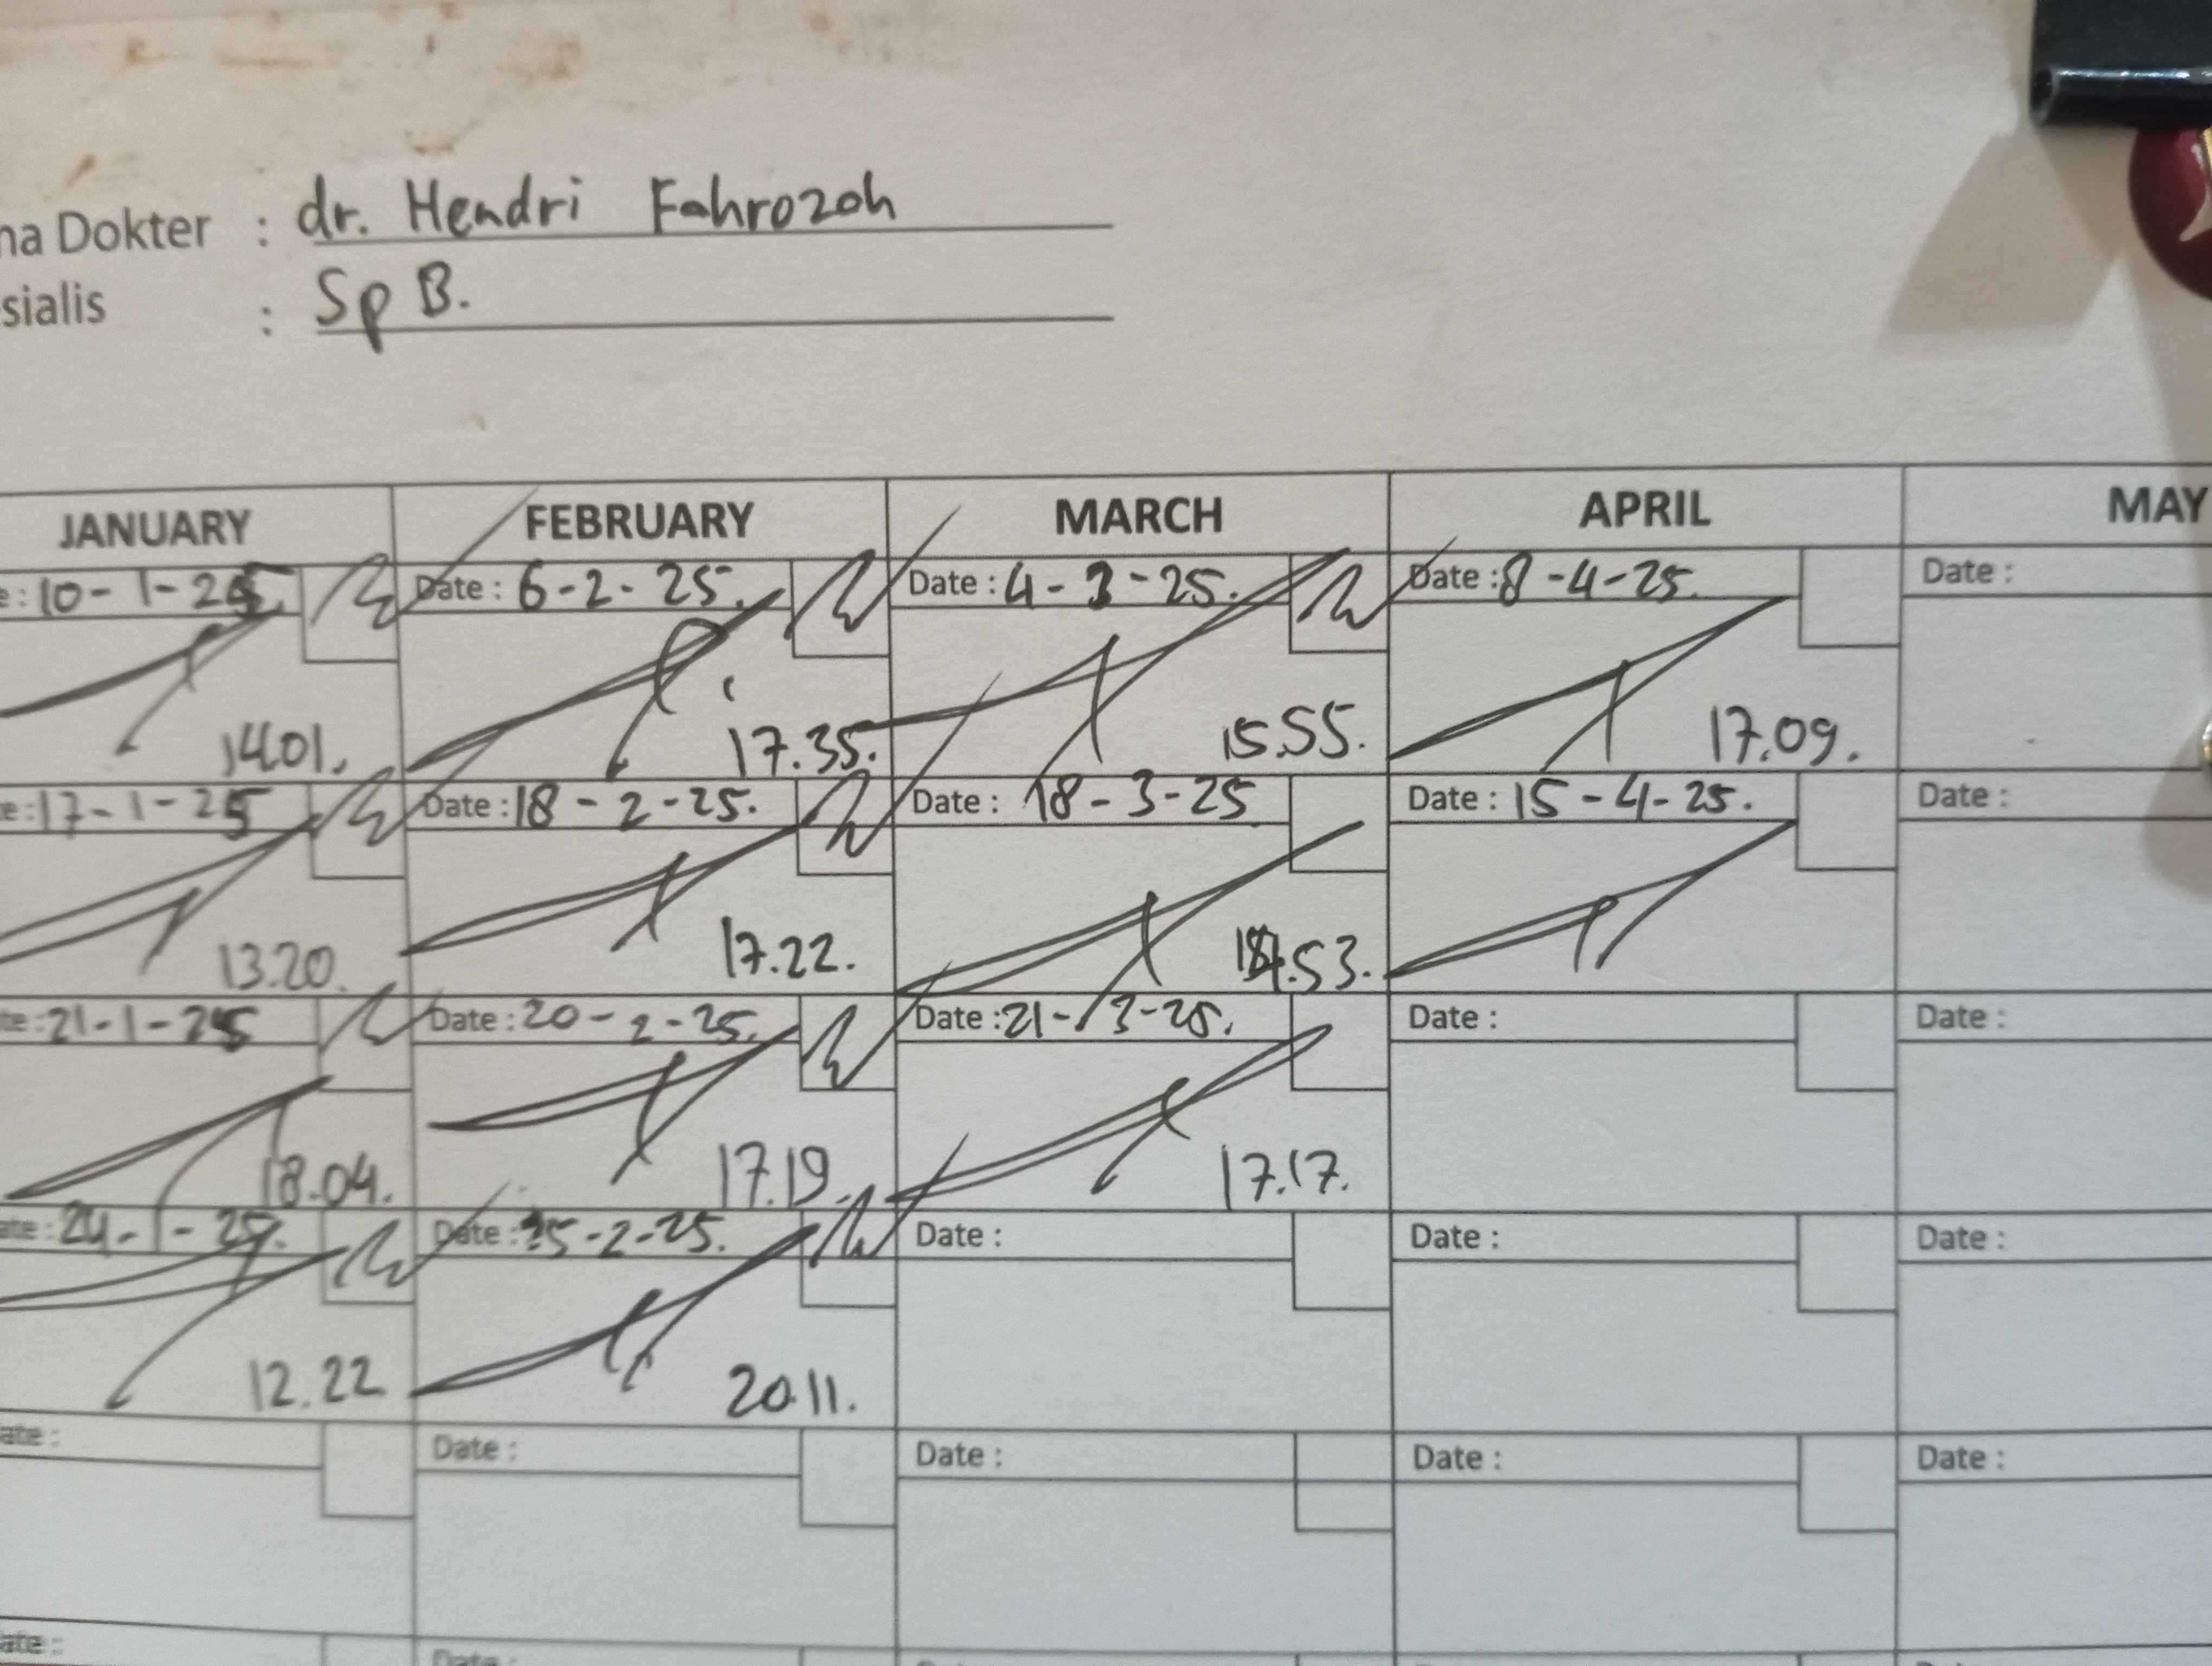 na Dokter : dr. Hendri Fahrozoh
sialis : Sp B.
JANUARY FEBRUARY MARCH APRIL MAY
e: 10-1-25 Date: 6-2-25. Date: 4-3-25. Date: 8-4-25. Date:
14.01. 17.35. 15.55. 17.09.
e: 17-1-25 Date: 18-2-25. Date: 18-3-25 Date: 15-4-25. Date:
13.20. 17.22. .53.
te: 21-1-25 Date: 20-2-25. Date: 21-3-25. Date: Date:
18.04. 17.19. 17.17.
ate: 24-1-25. Date: 25-2-25. Date: Date: Date:
12.22 20.11.
ate: Date: Date: Date: Date:
ate: Date: